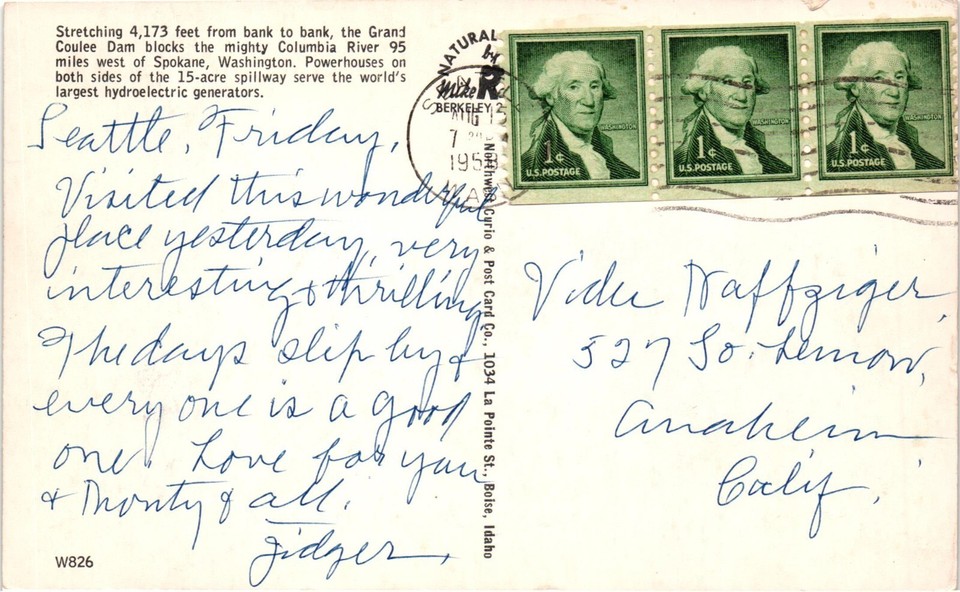 Stretching 4,173 feet from bank to bank, the Grand
Coulee Dam blocks the mighty Columbia River 95
miles west of Spokane, Washington. Powerhouses on
both sides of the 15-acre spillway serve the world's
largest hydroelectric generators.
Seattle, Friday,
Visited this wonderful
place yesterday, very
interesting & thrilling
The days slip by &
every one is a good
one. Love for you
& Monty & all.
W826
NATURAL
by
Mike
BERKELEY 2
AUG 15
7
195
Northwest Curio & Post Card Co., 1034 La Pointe St., Boise, Idaho
WASHINGTON
1¢
U.S. POSTAGE
WASHINGTON
1¢
U.S. POSTAGE
WASHINGTON
1¢
U.S. POSTAGE
Naffziger,
527 So. Lemon,
Anaheim
Calif.